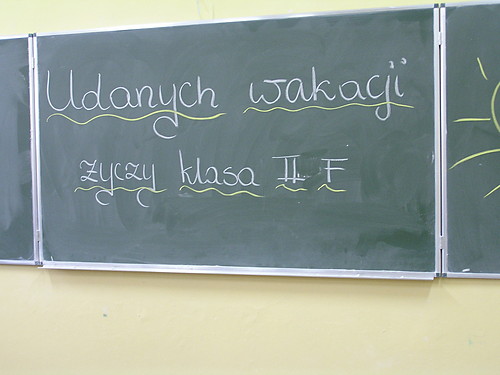 Udanych wakacji
życzy klasa II F